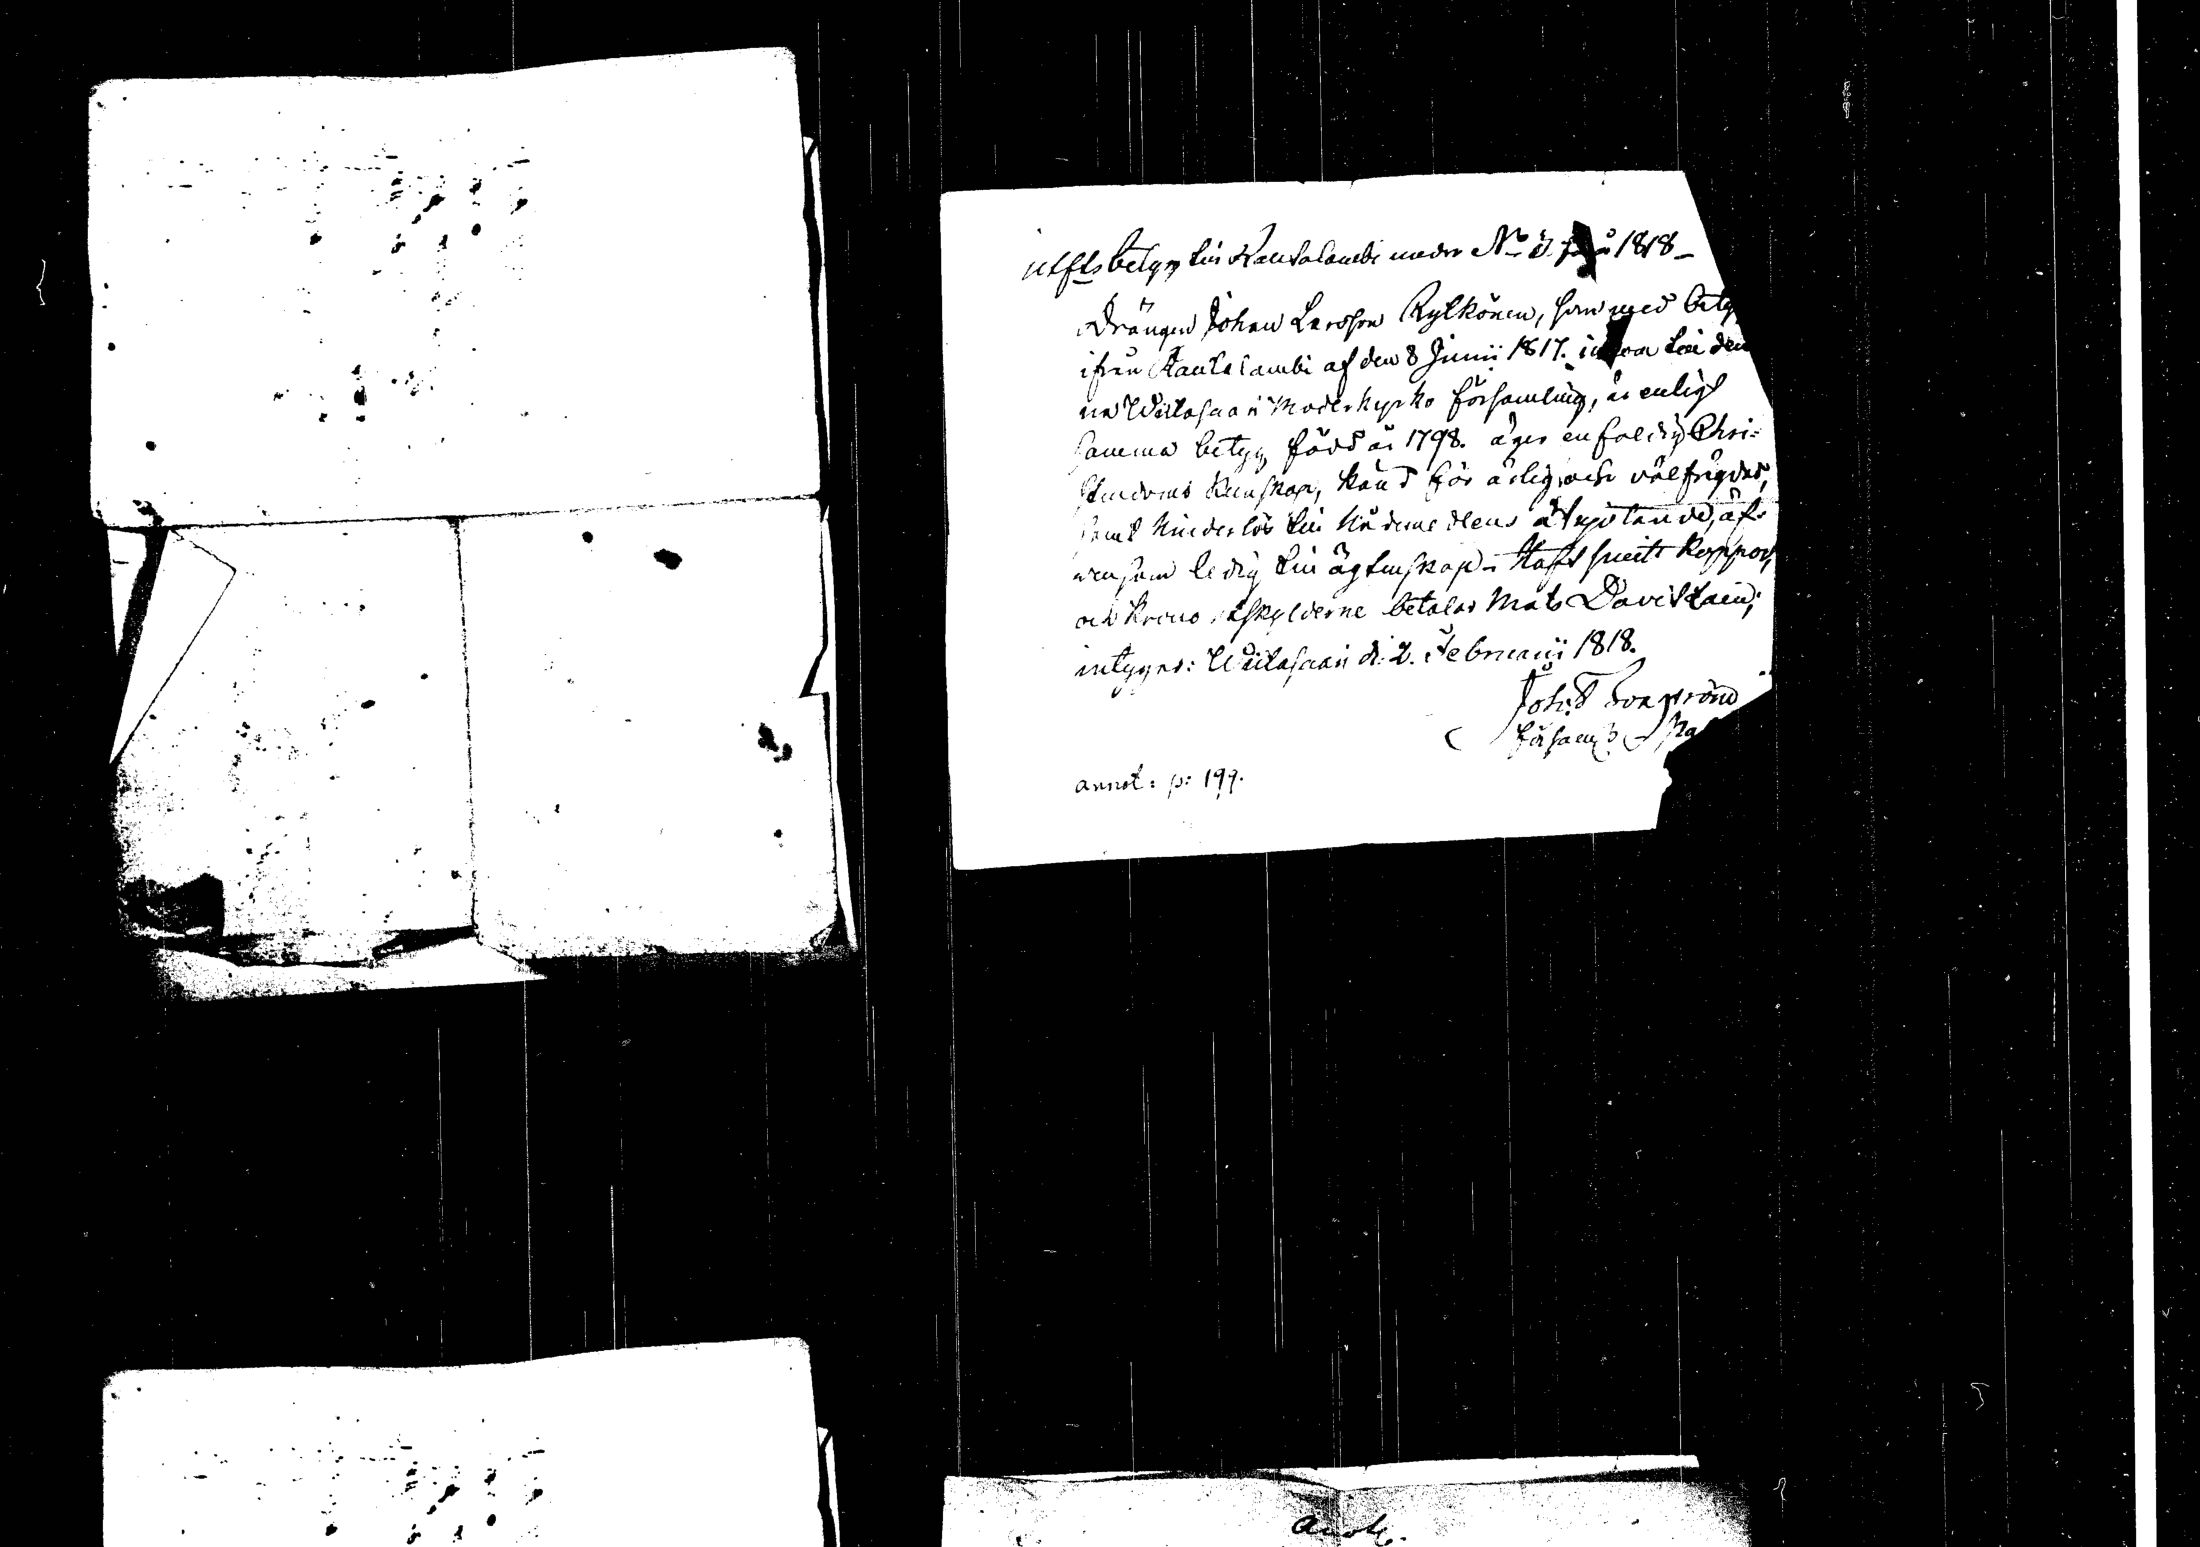 Utfts betyg till Rautalambi under No 3. 1818 –
Drängen Johan Larsson Rytkönen, som med bety
ifrån Rautalambi af den 8 Junii 1817. till den
na Wiitasaari Moderkyrko församling, är enligt
samma betyg född år 1798. äger enfaldig Chri=
stendoms kunskap, känd för ärlig och välfrägdad,
samt hinderlös till Nådemedlens åtnjutande, äf=
wensom ledig till ägtenskap – Haft koppor,
och Krono utskylderne betalar Mats Davidsain;
intygas: Wiitasaari d. 2. Februarii 1818.
Joh:
Församl:
annot: p: 199.
Anot.